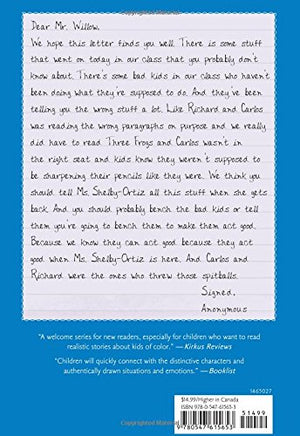 Dear Mr. Willow,
We hope this letter finds you well. There is some stuff
that went on today in our class that you probably don't
know about. There's some bad kids in our class who haven't
been doing what they're supposed to do. And they've been
telling you the wrong stuff a lot. Like Richard and Carlos
was reading the wrong paragraphs on purpose and we really
did have to read Three Frogs and Carlos wasn't in
the right seat and kids know they weren't supposed to
be sharpening their pencils like they were. We think you
should tell Ms. Shelby-Ortiz all this stuff when she gets
back. And you should probably bench the bad kids or tell
them you're going to bench them to make them act good.
Because we know they can act good because they act
good when Ms. Shelby-Ortiz is here. And Carlos and
Richard were the ones who threw those spitballs.
Signed,
Anonymous
"A welcome series for new readers, especially for children who want to read
realistic stories about kids of color." — Kirkus Reviews
"Children will quickly connect with the distinctive characters and
authentically drawn situations and emotions." — Booklist
1465027
$14.99/Higher in Canada
ISBN 978-0-547-61563-3
51499
9 780547 615653